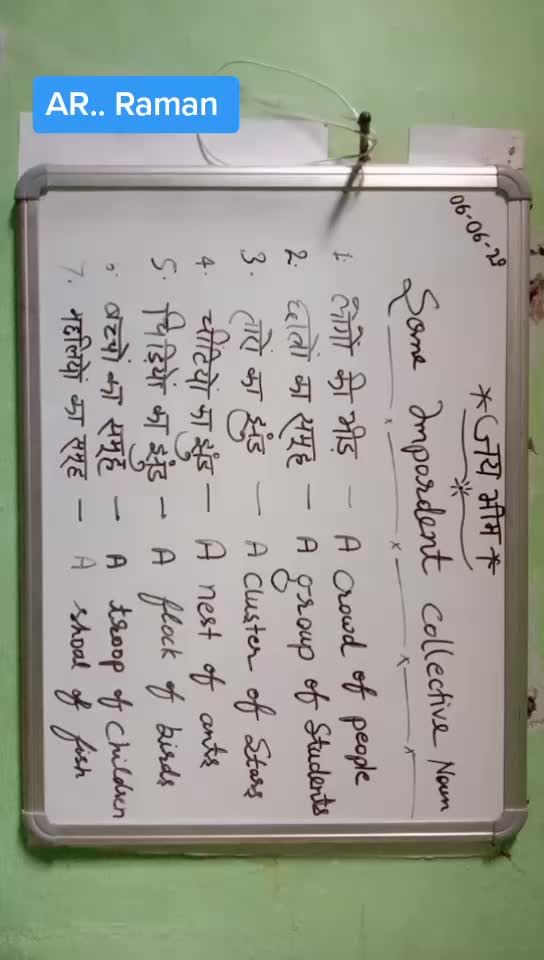 AR.. Raman
*जय भीम*
06-06-20
Some Impardent Collective Noun
1. लोगों की भीड़ - A crowd of people
2. छात्रों का समूह - A group of Students
3. तारों का झुंड - A Cluster of Stars
4. चींटियों का झुंड - A nest of ants
5. चिड़ियों का झुंड - A flock of birds
6. बच्चों का समूह - A troop of Children
7. मछलियों का समूह - A shoal of fish